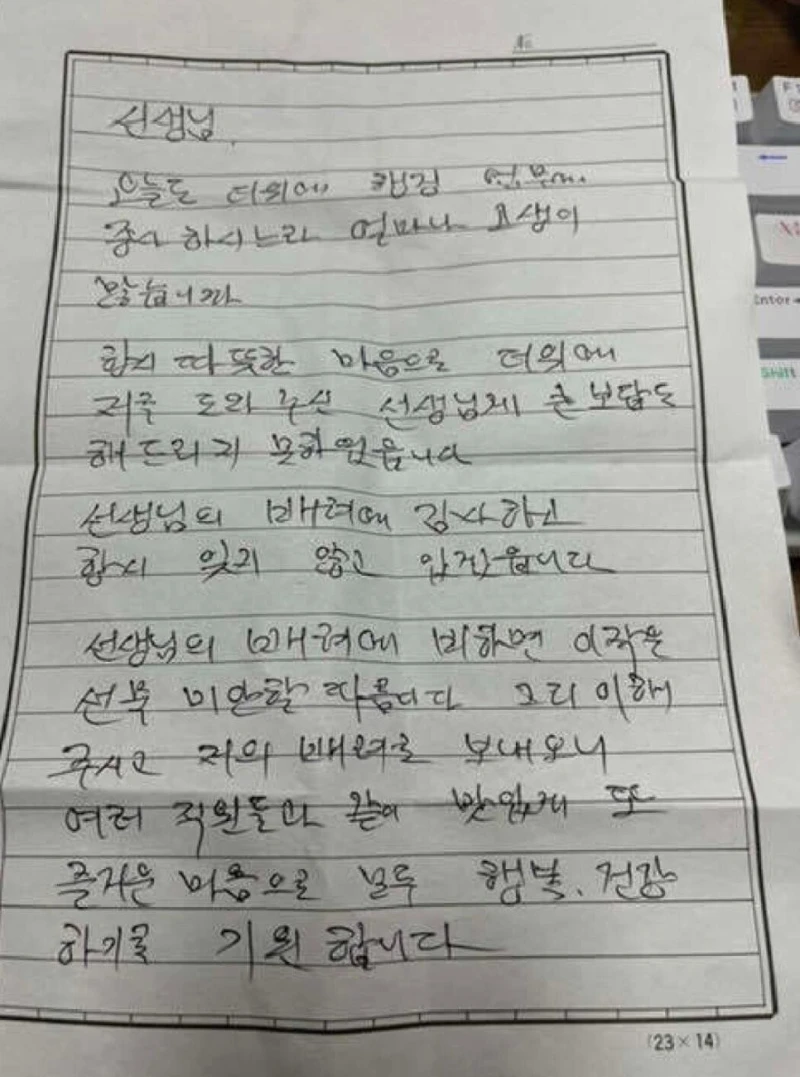 No
선생님.
오늘도 더위에 업무에
종사 하시느라 얼마나 고생이
많습니까
항시 따뜻한 마음으로 더위에
저를 도와 주신 선생님게 큰 보답도
해드리지 못하였읍니다
선생님의 배려에 감사하고
항시 잊지 않고 있읍니다
선생님의 배려에 비하면 이 작은
선물 미안할 따름이다 그리 이해
주시고 저의 배려로 보내오니
여러 직원들과 같이 맛있게 또
즐거운 마음으로 모두 행복. 건강
하기를 기원 합니다
(23×14)
Enter
Shift